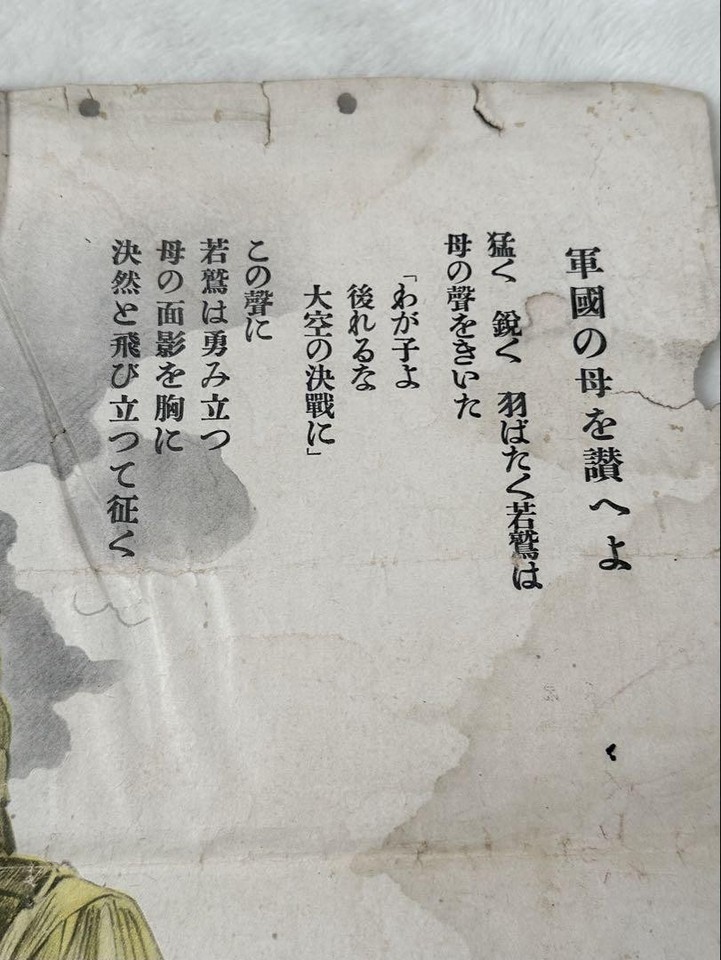 軍國の母を讃へよ
猛く　鋭く　羽ばたく若鷲は
母の聲をきいた
「わが子よ
後れるな
大空の決戰に」
この聲に
若鷲は勇み立つ
母の面影を胸に
決然と飛び立つて征く